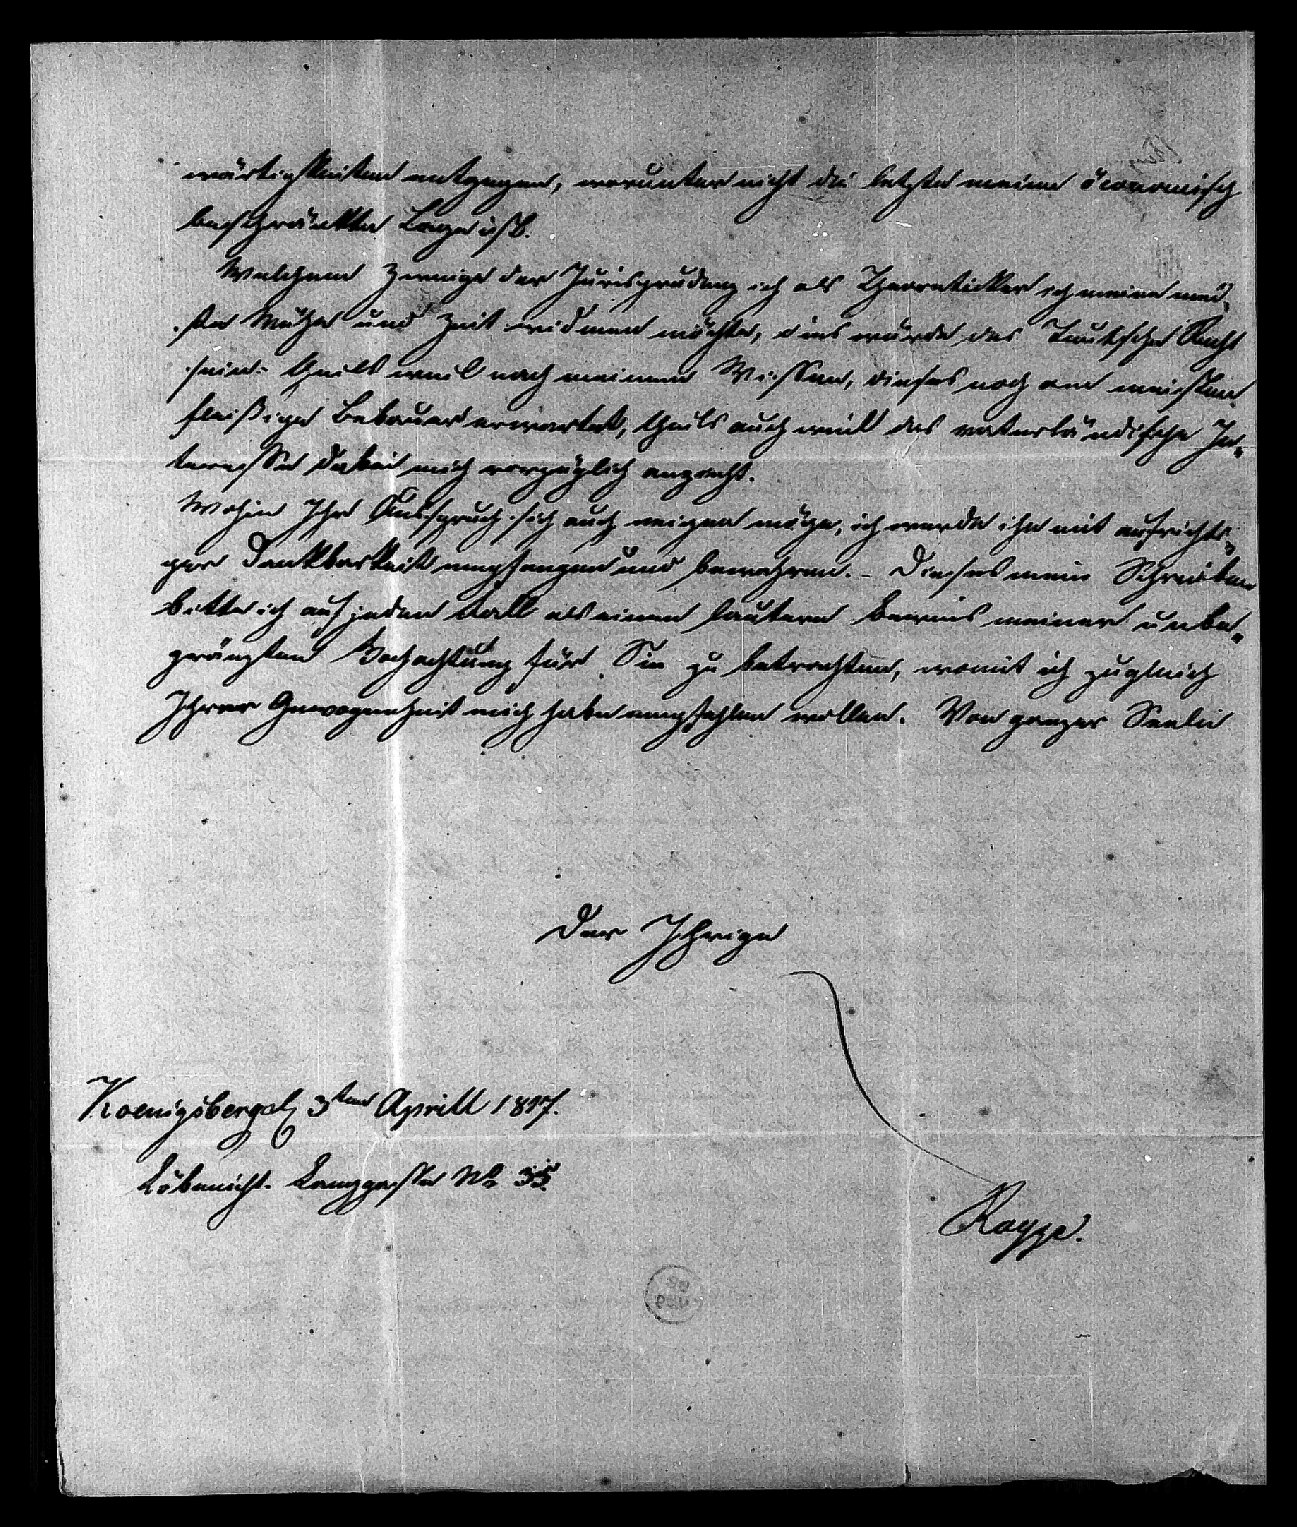 wärtigkeiten entgegen, worunter nicht die letzte meine öconomisch
beschränkte Lage ist.
Welchem Zweige der Jurisprudenz ich als Theoreticker ich meine mei-
ste Mühe und Zeit widmen möchte, dies würde das Teutsche Recht
sein theils weil nach meinem Wissen, dieses noch am meisten
fleißige Bebauer erwartet, theils auch weil das vaterländische In-
teresse dabei mich vorzüglich anzieht.
Wohin Ihr Ausspruch sich auch neigen möge, ich werde ihn mit aufrichti-
ger Dankbarkeit empfangen und bewahren. – Dieses mein Schreiben
bitte ich auf jeden Fall als einen lautern Beweis meiner unbe-
gränzten Hochachtung für Sie zu betrachten, womit ich zugleich
Ihrer Gewogenheit mich habe empfehlen wollen. Von ganzer Seele
der Ihrige
Koenigsberg d 3ten Aprill 1817.
Löbenicht. Langgasse No 35.
Rappe.